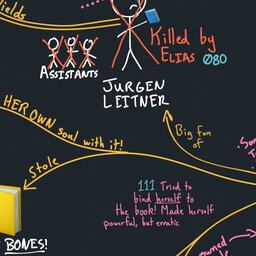 ields
Killed by
ELIAS 080
ASSISTANTS
JURGEN
LEITNER
HER OWN soul with it!
Big fan
of
Stole
111 Tried to
bind herself to
the book! Made herself
powerful, but erratic
BONES!
owned